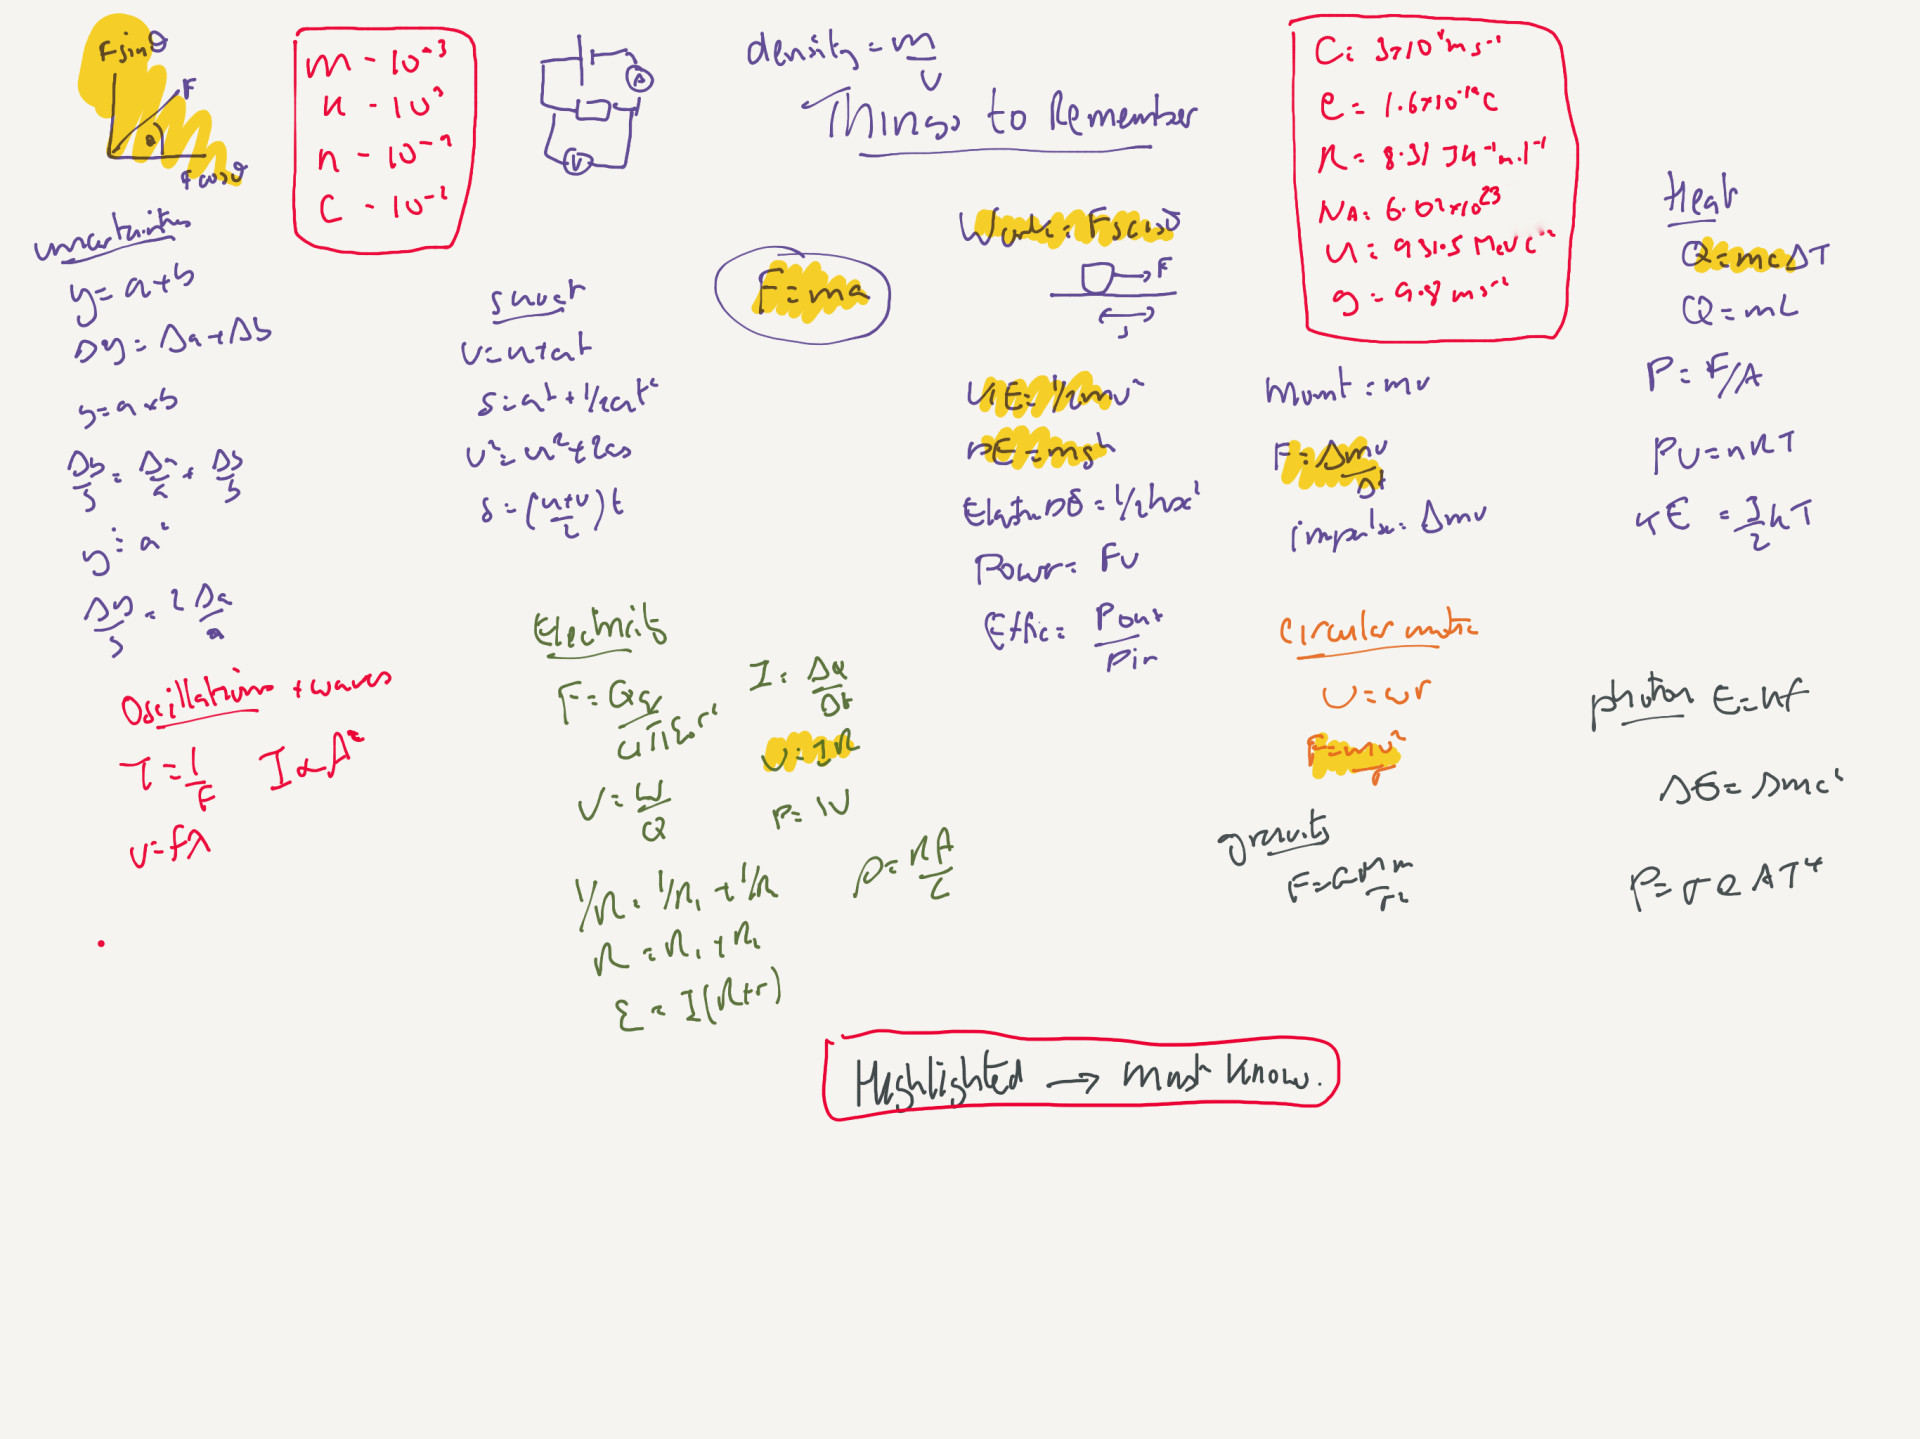 Fsinθ
F
θ
Fcosθ
m - 10⁻³
k - 10³
n - 10⁻⁹
C - 10⁻²
A
V
density = m/V
Things to Remember
C: 3×10⁸ms⁻¹
e = 1.6×10⁻¹⁹C
R = 8.31 JK⁻¹mol⁻¹
NA: 6.02×10²³
u: 931.5 MeVC⁻²
g = 9.8 ms⁻²
uncertainties
y = a+b
Δy = Δa+Δb
y = a×b
Δy/y = Δa/a + Δb/b
y = a²
Δy/y = 2 Δa/a
suvat
v=u+at
s=ut+1/2at²
v²=u²+2as
s=(u+v/2)t
F=ma
Work = Fscosθ
F
s
KE=1/2mv²
PE=mgh
Elastic PE = 1/2kx²
Power = Fv
Effic = Pout/Pin
Momt = mv
F = Δmv/Δt
impulse = Δmv
Heat
Q=mcΔT
Q=mL
P = F/A
PV=nRT
KE = 3/2kT
Oscillations + waves
T = 1/F
I∝A²
v=fλ
Electricity
F = Qq/4πε₀r²
I = ΔQ/Δt
V = W/Q
V=IR
P= IV
1/R = 1/R₁ + 1/R₂
ρ = RA/L
R = R₁ + R₂
ε = I(R+r)
Circular motion
v=ωr
F=mv²/r
gravity
F=GMm/r²
photon E=hf
ΔE=Δmc²
P=σeAT⁴
Highlighted → must know.